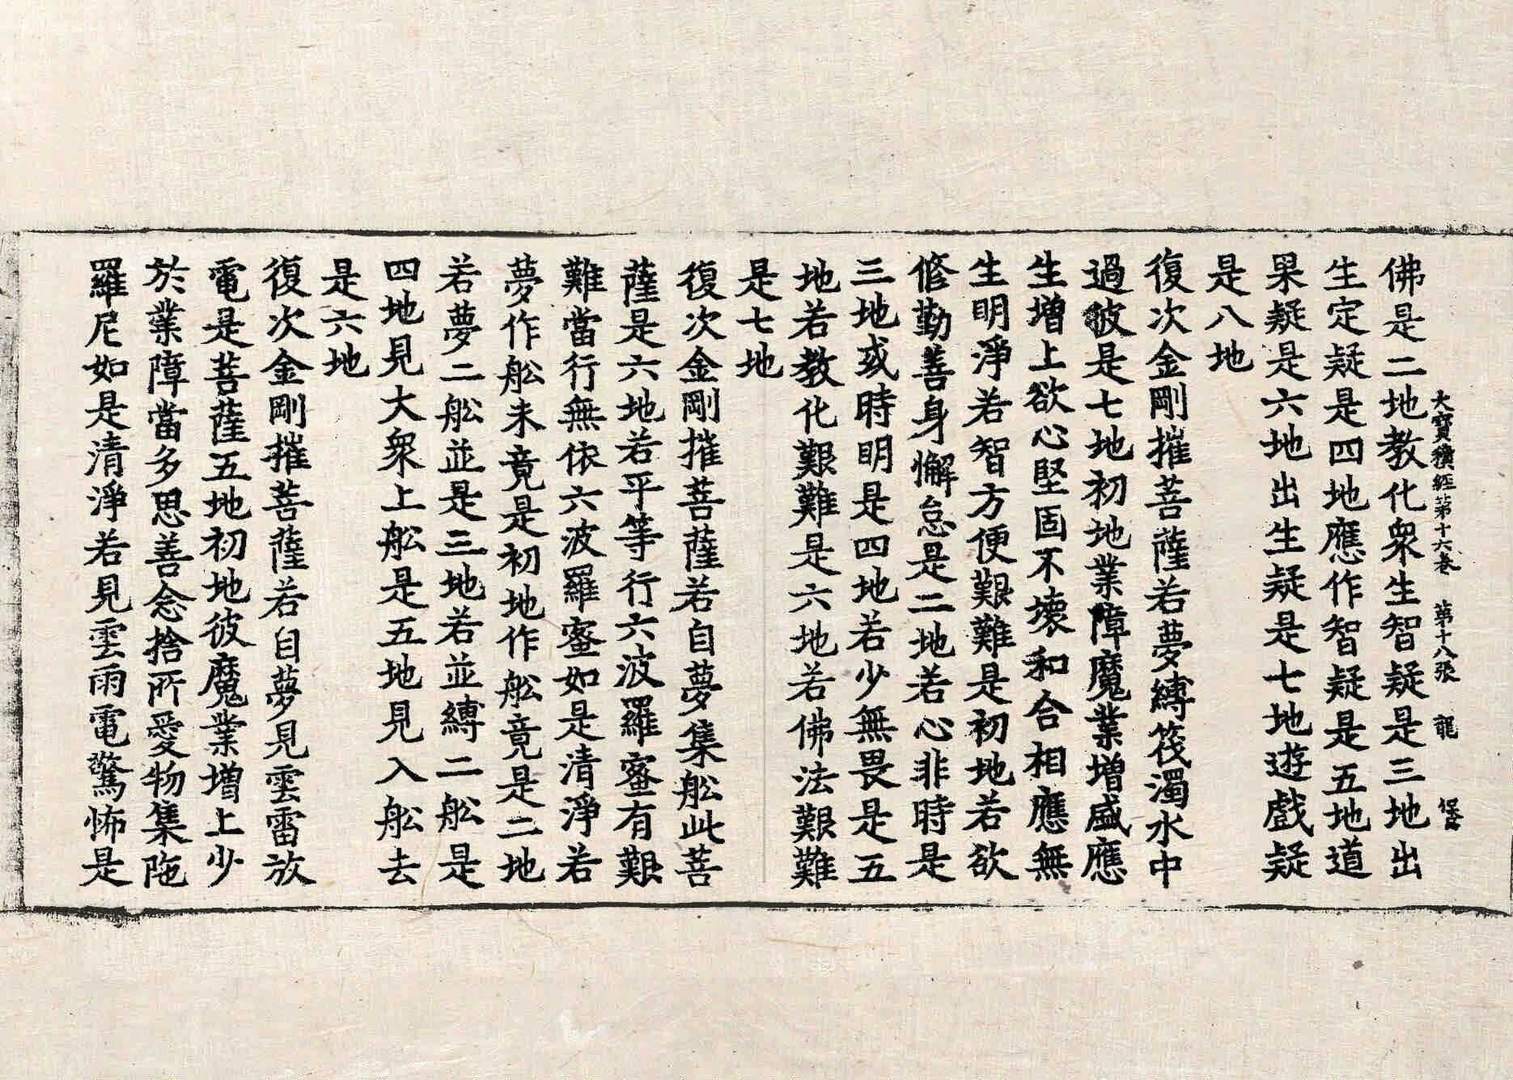 大寶積經第十六卷 第十八張 龍
佛是二地教化衆生智疑是三地出
生定疑是四地應作智疑是五地道
果疑是六地出生疑是七地遊戲疑
是八地
復次金剛摧菩薩若夢縛筏濁水中
過彼是七地初地業障魔業增盛應
生增上欲心堅固不壞和合相應無
生明淨若智方便艱難是初地若欲
修勤善身懈怠是二地若心非時是
三地或時明是四地若少無畏是五
地若教化艱難是六地若佛法艱難
是七地
復次金剛摧菩薩若自夢集舩此菩
薩是六地若平等行六波羅蜜有艱
難當行無依六波羅蜜如是清淨若
夢作舩未竟是初地作舩竟是二地
若夢二舩並是三地若並縛二舩是
四地見大衆上舩是五地見入舩去
是六地
復次金剛摧菩薩若自夢見雲雷放
電是菩薩五地初地彼魔業增上少
於業障當多思善念捨所愛物集陁
羅尼如是清淨若見雲雨電驚怖是